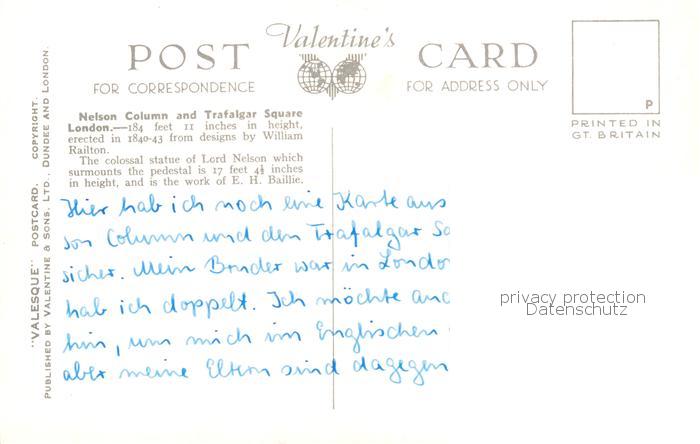 POST Valentine's CARD
FOR CORRESPONDENCE
FOR ADDRESS ONLY
P
PRINTED IN
GT. BRITAIN
"VALESQUE" POSTCARD. COPYRIGHT.
PUBLISHED BY VALENTINE & SONS, LTD., DUNDEE AND LONDON.
Nelson Column and Trafalgar Square
London.—184 feet 11 inches in height,
erected in 1840-43 from designs by William
Railton.
The colossal statue of Lord Nelson which
surmounts the pedestal is 17 feet 4½ inches
in height, and is the work of E. H. Baillie.
Hier hab ich noch eine Karte aus
son Column und den Trafalgar Sq
sicher. Mein Bruder war in Londo
hab ich doppelt. Ich möchte auc
hin, um mich im Englischen
aber meine Eltern sind dagegen
privacy protection
Datenschutz